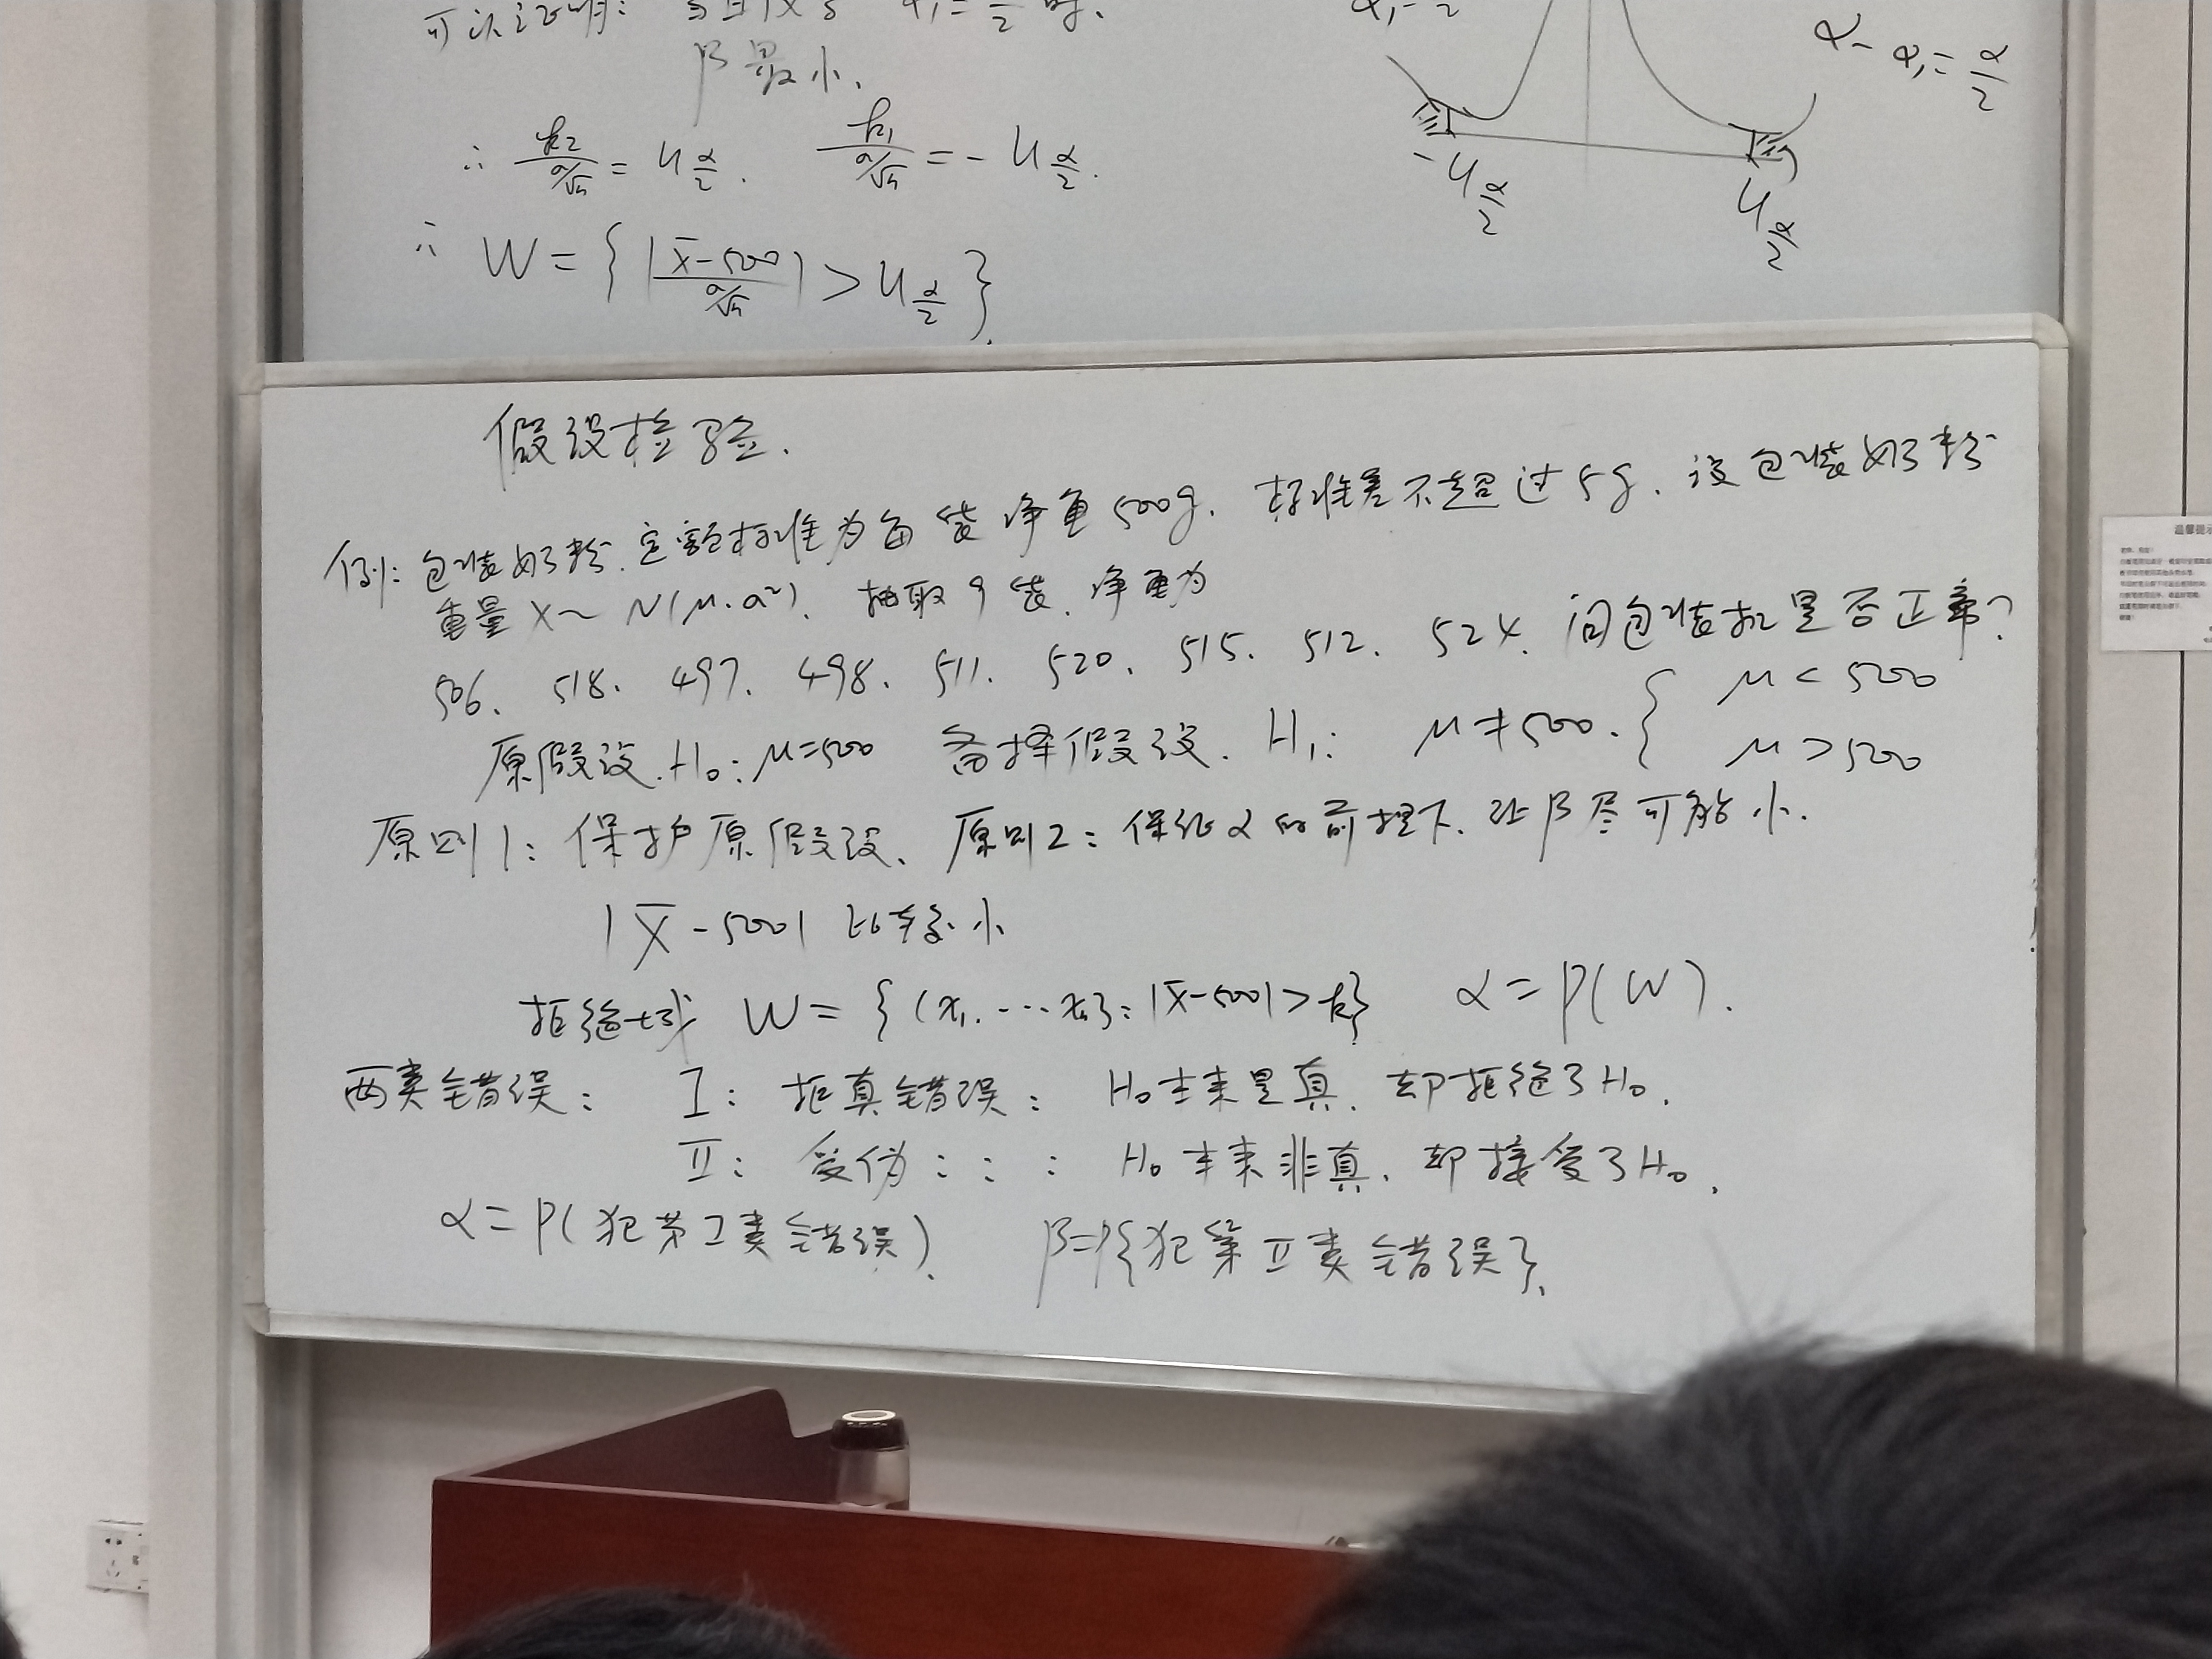 可以证明: 当且仅当 α₁=α/2 时.
β最小.
α-α₁=α/2
∴ k₂/(σ/√n) = u_{α/2}. k₁/(σ/√n) = -u_{α/2}.
-u_{α/2} u_{α/2}
∴ W = { |(x̄-500)/(σ/√n)| > u_{α/2} }.
假设检验.
例: 包装奶粉. 定额标准为每袋净重500g. 标准差不超过5g. 设包装奶粉
重量 X~N(μ.σ²). 抽取9袋. 净重为
506. 518. 497. 498. 511. 520. 515. 512. 524. 问包装机是否正常?
原假设. H₀: μ=500 备择假设. H₁: μ≠500. { μ<500 μ>500
原则1: 保护原假设. 原则2: 保证α的前提下. 让β尽可能小.
|X̄-500| 比较小
拒绝域 W = {(x₁. … xₙ): |x̄-500|>k} α=P(W).
两类错误: I: 拒真错误: H₀本来是真. 却拒绝了H₀.
II: 受伪 : : : H₀本来非真. 却接受了H₀.
α=P(犯第I类错误). β=P{犯第II类错误}.
温馨提示